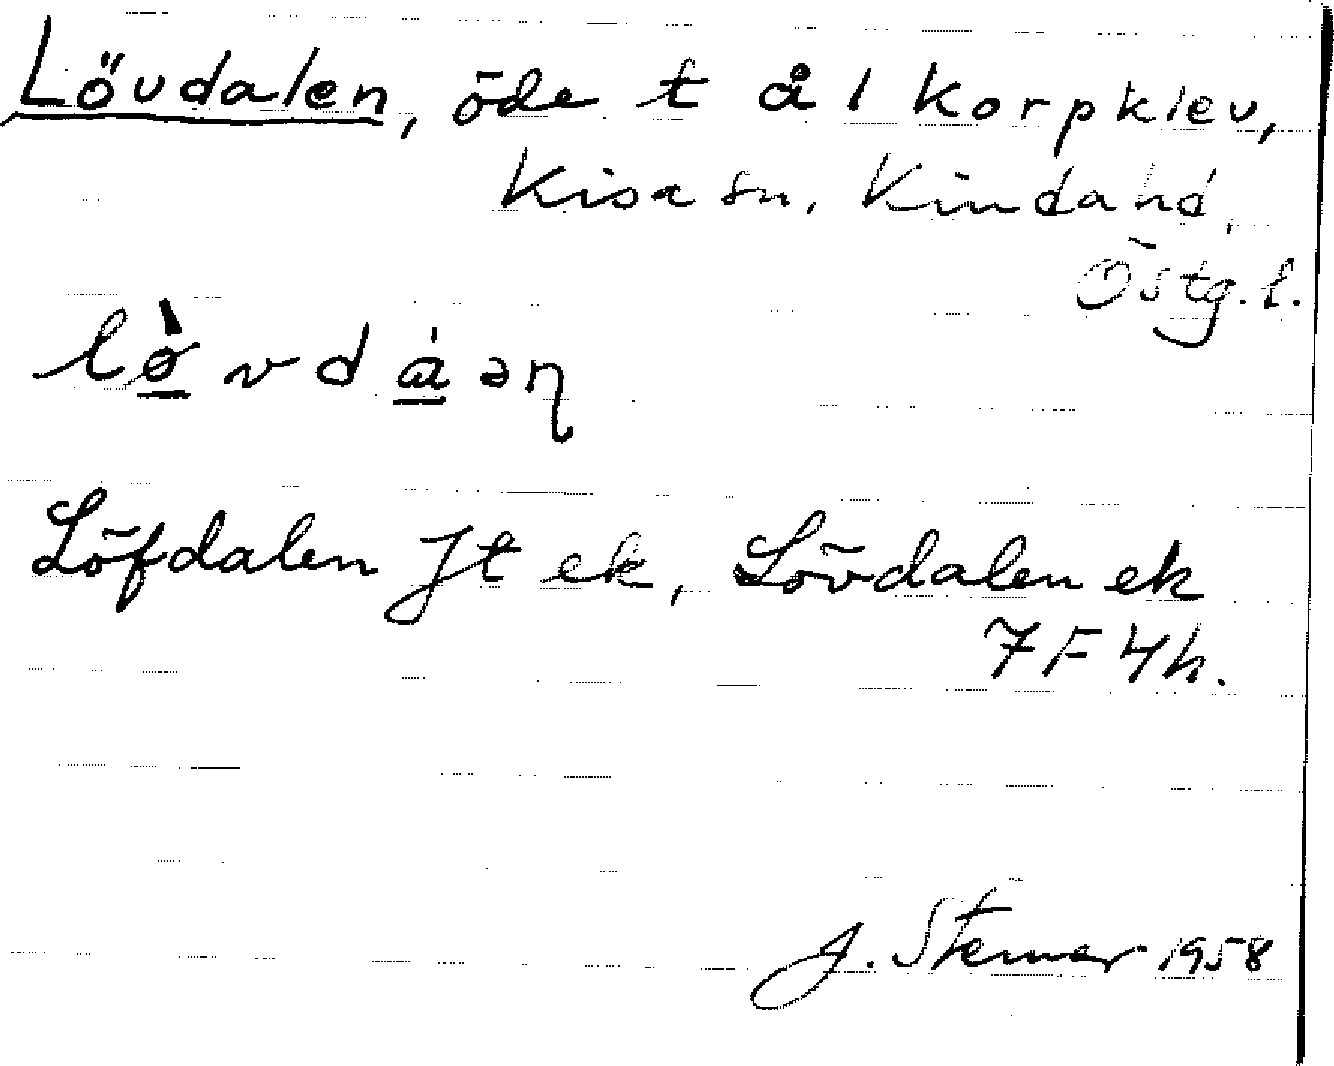 Lövdalen, öde t ål Korpklev,
Kisa sn, Kinda hd,
Östg.l.
lø̀vdáəη
Löfdalen Jt ek, Lövdalen ek
7F4h.
J. Sterner 1958